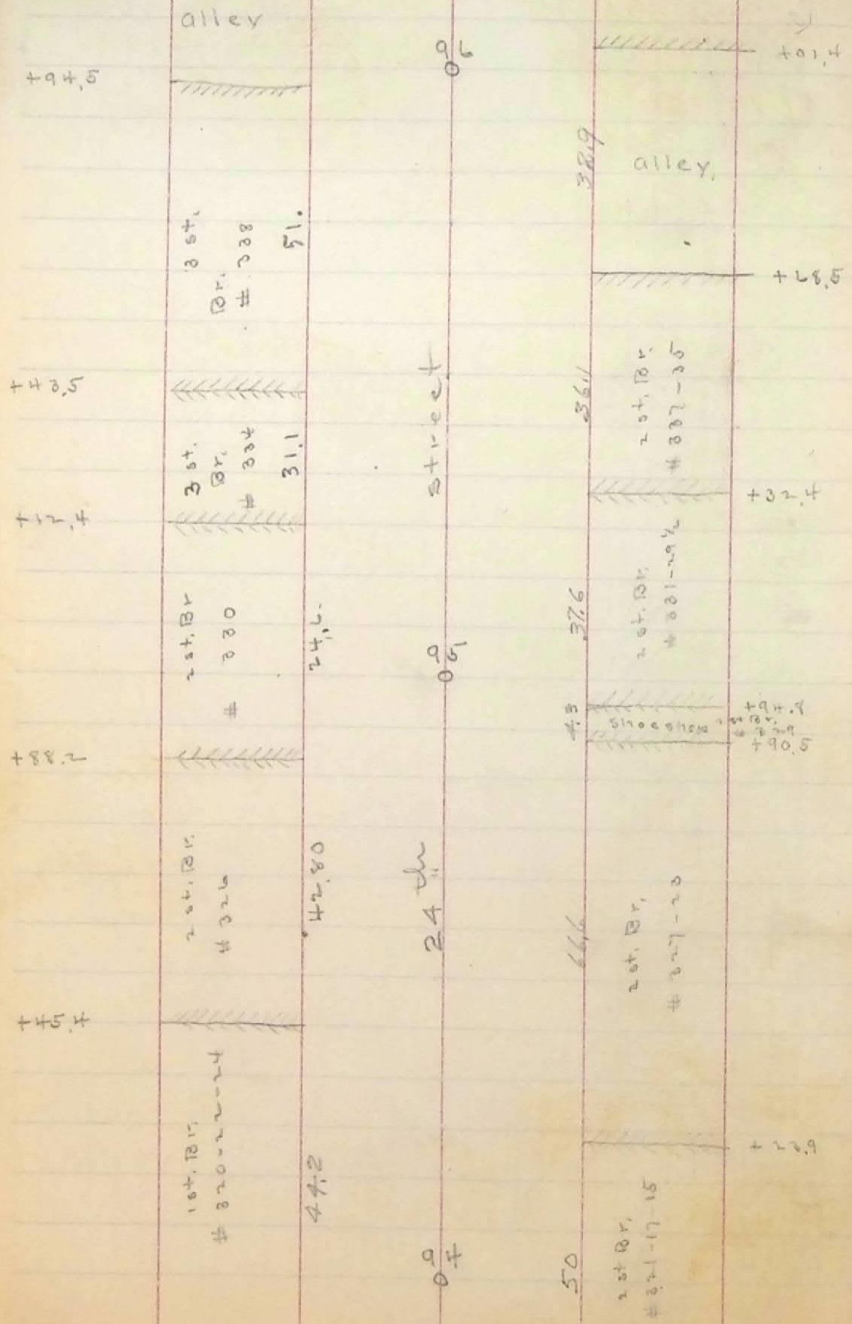 alley
+94.5
3 st.
Br.
# 338
51.
+43.5
3 st.
Br.
# 334
31.1
+12.4
2 st. Br
# 330
24.2
+88.2
2 st. Br.
# 326
42.80
+45.4
1 st. Br.
# 320-22-24
44.2
0+6
street
0+5
24 th
0+4
+01.4
38.9
alley.
+28.5
36.1
2 st. Br.
# 337-35
+32.4
37.6
2 st. Br.
# 331-29½
+94.8
4.3
shoe shop
+90.5
66.6
2 st. Br.
# 327-23
+23.9
50
2 st Br.
# 321-17-15